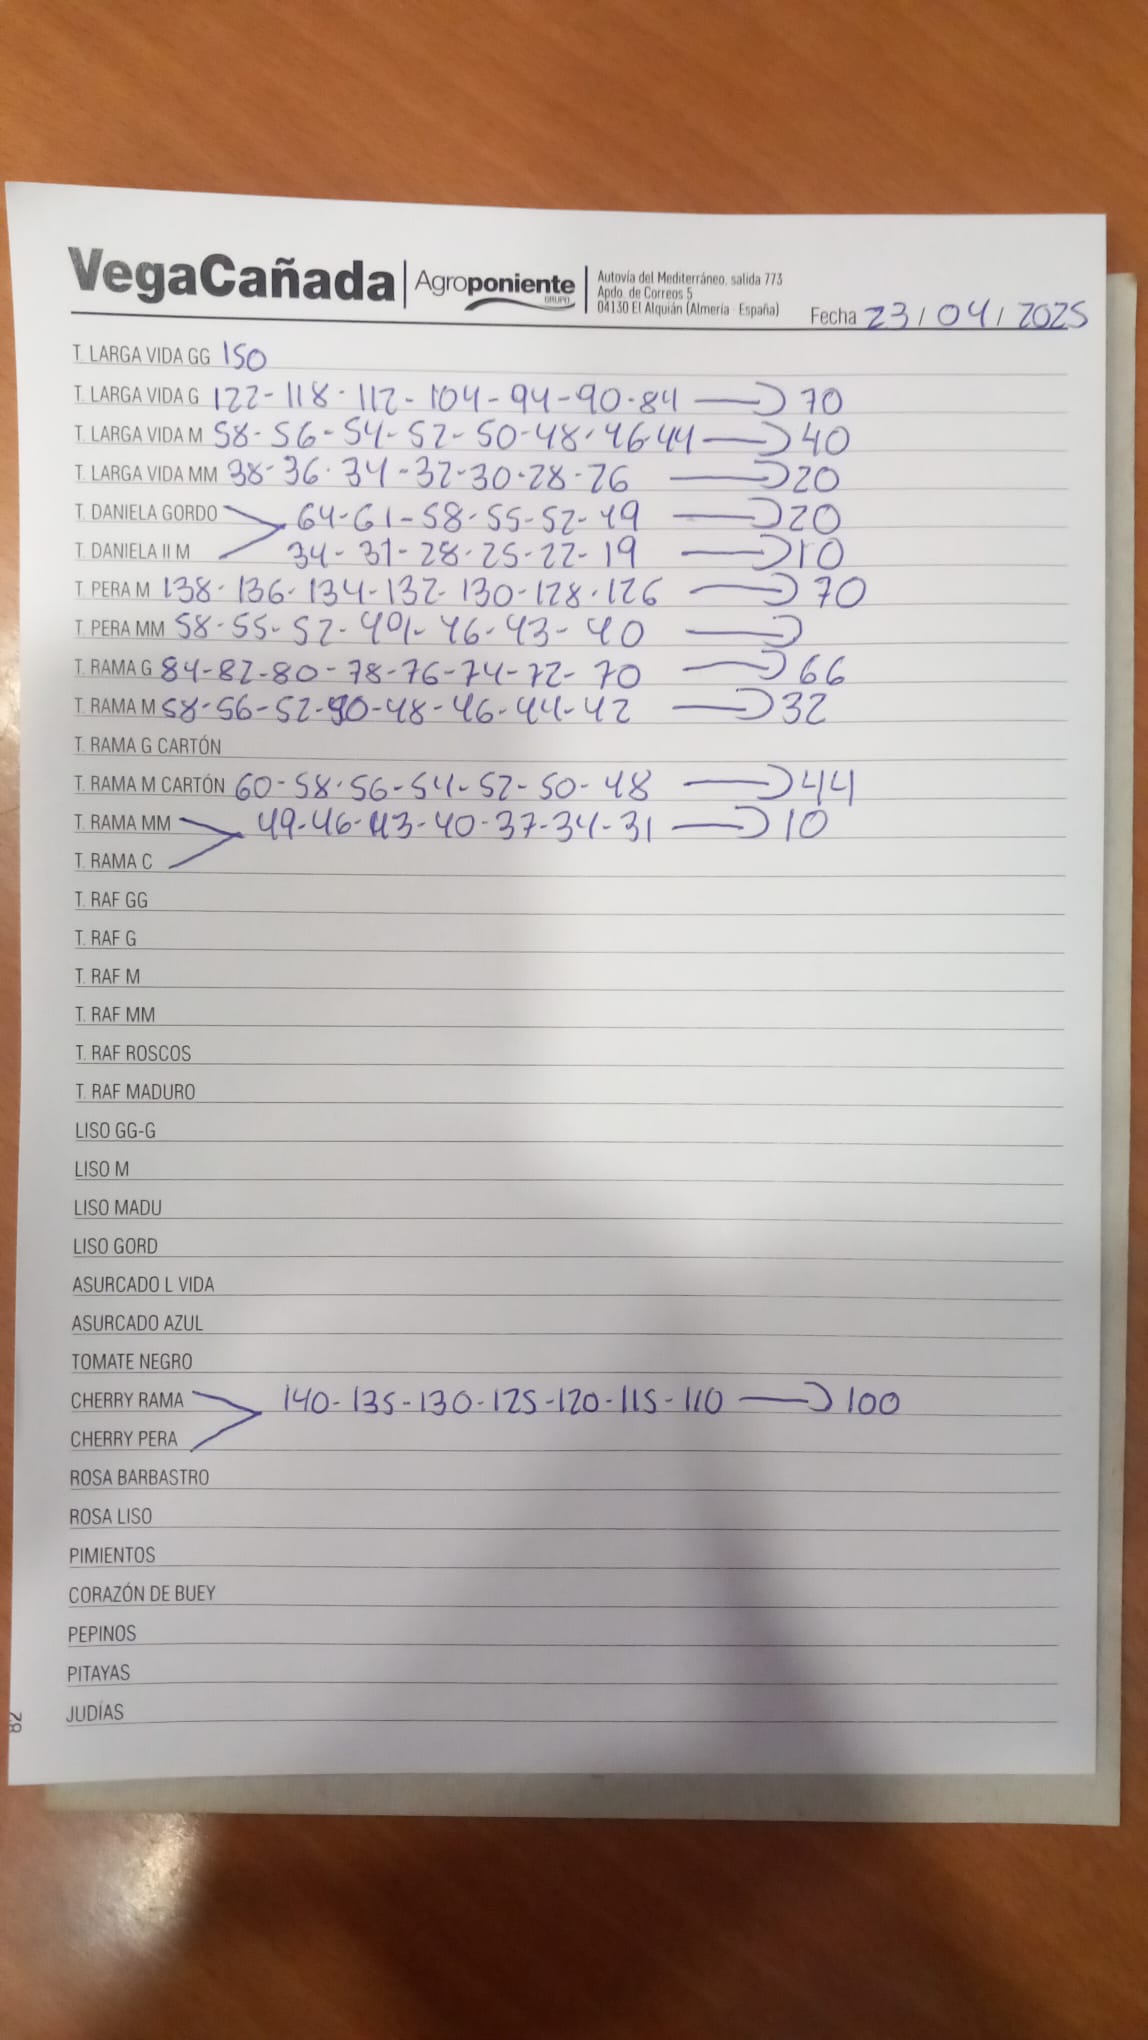 VegaCañada | Agroponiente GRUPO
Autovía del Mediterráneo, salida 773
Apdo. de Correos 5
04130 El Alquián (Almería - España)
Fecha 23/04/2025
T. LARGA VIDA GG 150
T. LARGA VIDA G 122-118-112-104-94-90-84 → 70
T. LARGA VIDA M 58-56-54-52-50-48-46-44 → 40
T. LARGA VIDA MM 38-36-34-32-30-28-26 → 20
T. DANIELA GORDO 64-61-58-55-52-49 → 20
T. DANIELA II M 34-31-28-25-22-19 → 10
T. PERA M 138-136-134-132-130-128-126 → 70
T. PERA MM 58-55-52-49-46-43-40 →
T. RAMA G 84-82-80-78-76-74-72-70 → 66
T. RAMA M 58-56-52-50-48-46-44-42 → 32
T. RAMA G CARTÓN
T. RAMA M CARTÓN 60-58-56-54-52-50-48 → 44
T. RAMA MM 49-46-43-40-37-34-31 → 10
T. RAMA C
T. RAF GG
T. RAF G
T. RAF M
T. RAF MM
T. RAF ROSCOS
T. RAF MADURO
LISO GG-G
LISO M
LISO MADU
LISO GORD
ASURCADO L VIDA
ASURCADO AZUL
TOMATE NEGRO
CHERRY RAMA 140-135-130-125-120-115-110 → 100
CHERRY PERA
ROSA BARBASTRO
ROSA LISO
PIMIENTOS
CORAZÓN DE BUEY
PEPINOS
PITAYAS
JUDÍAS
82